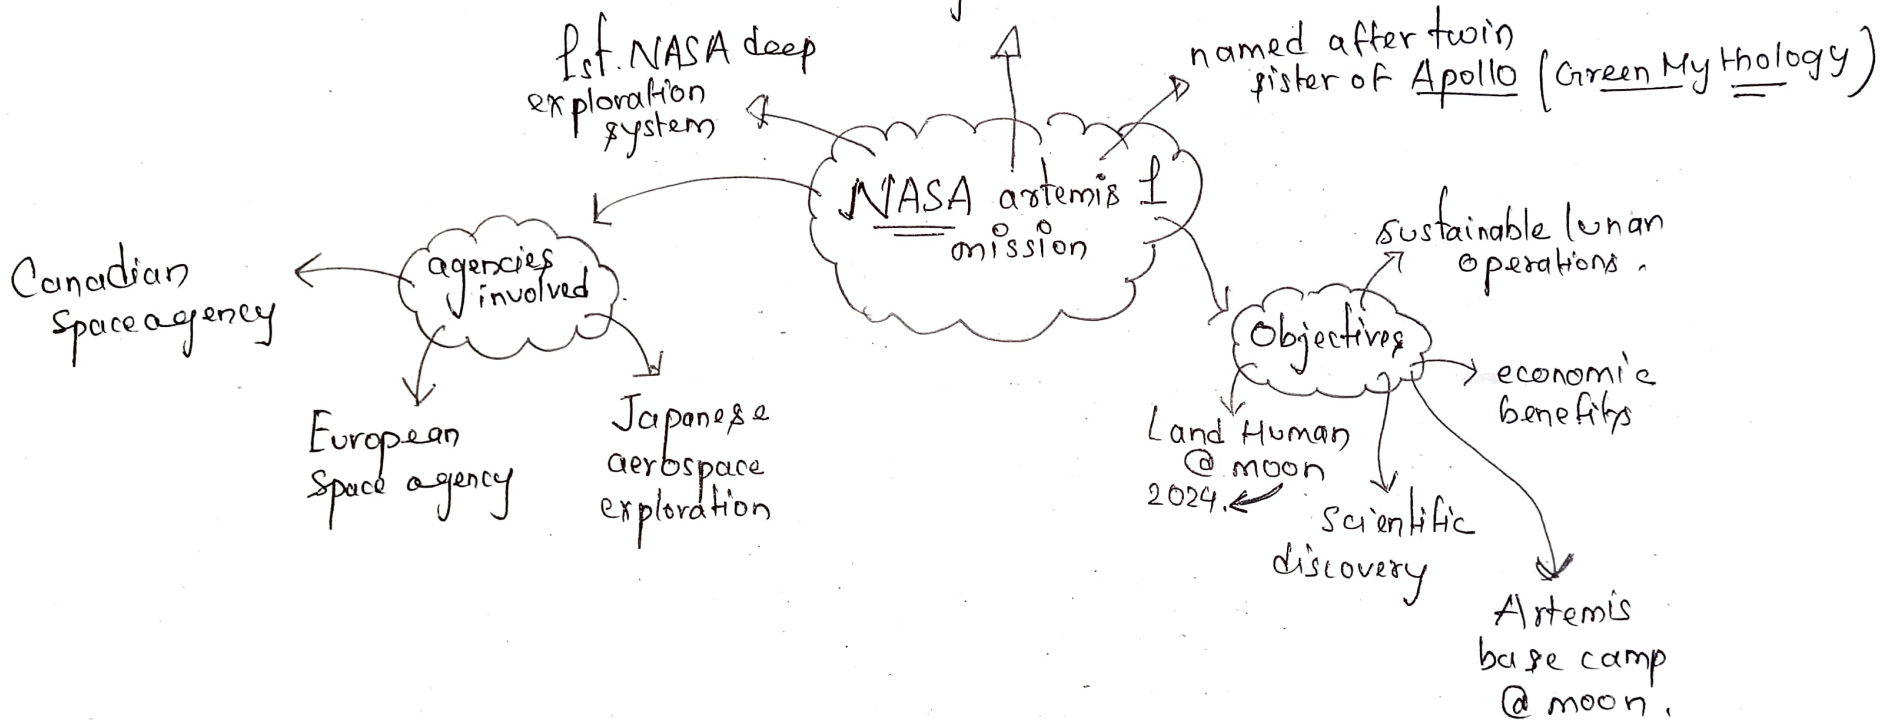 1st. NASA deep
exploration
system
named after twin
sister of Apollo (Green Mythology)
NASA artemis 1
mission
agencies
involved
Canadian
Space agency
European
Space agency
Japanese
aerospace
exploration
Objectives
sustainable lunan
operations.
economic
benefits
Land Human
@ moon
2024.
scientific
discovery
Artemis
base camp
@ moon.